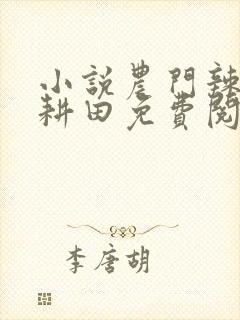 小說農門辣
耕田免費閱
李唐胡